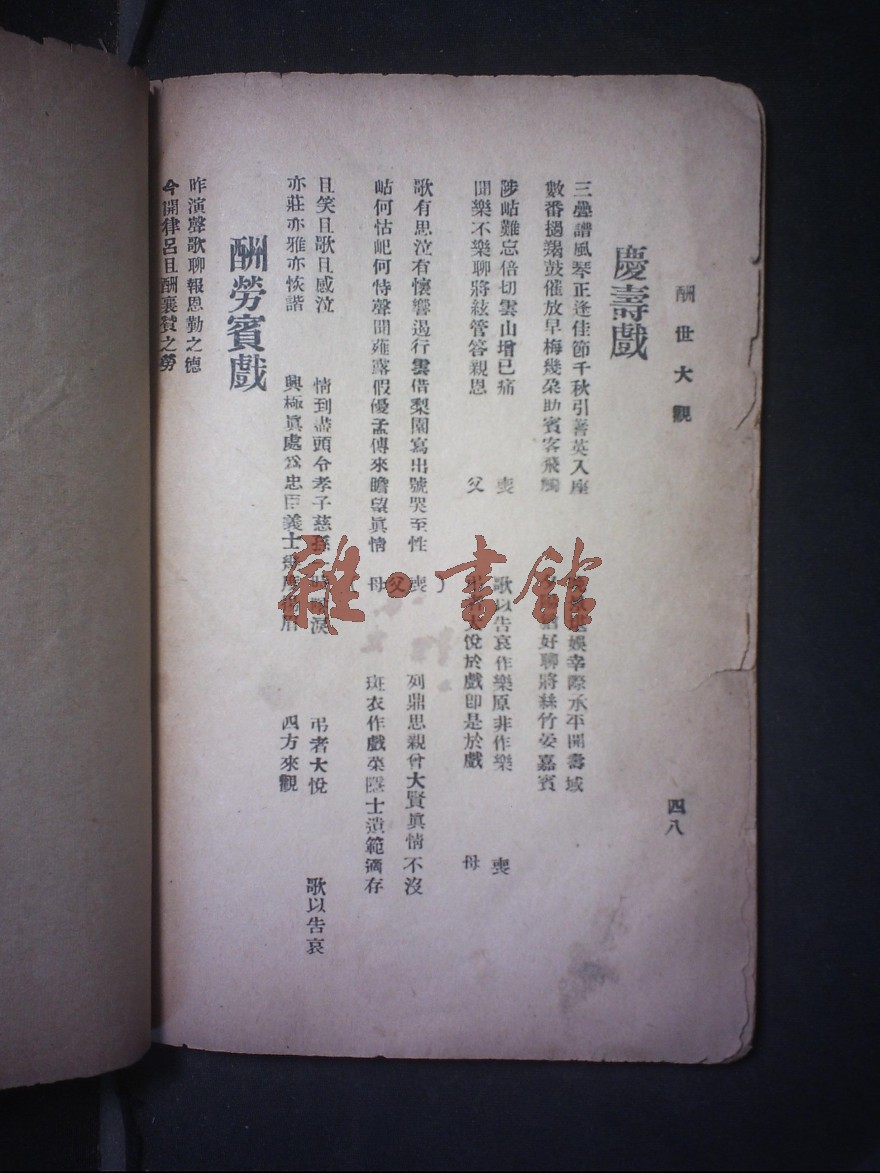 酬世大觀
四八
慶壽戲
三疊譜風琴正逢佳節千秋引蓍英入座
數番撾羯鼓催放早梅幾朶助賓客飛觴
娛幸際承平開壽域
好聊將絲竹宴嘉賓
陟岵難忘倍切雲山增已痛
聞樂不樂聊將絃管答親恩
喪父
歌以告哀作樂原非作樂
大悅於戲卽是於戲
喪母
歌有思泣有懷響遏行雲借梨園寫出號哭至性
岵何怙屺何恃聲聞薤露假優孟傳來瞻望眞情
喪父母
列鼎思親曾大賢眞情不沒
斑衣作戲萊隱士遺範猶存
且笑且歌且感泣
亦莊亦雅亦恢諧
情到盡頭令孝子慈孫一時
興極眞處爲忠臣義士
弔者大悅
四方來觀
歌以告哀
酬勞賓戲
昨演聲歌聊報恩勤之德
今開律呂且酬襄贊之勞
雜·書館